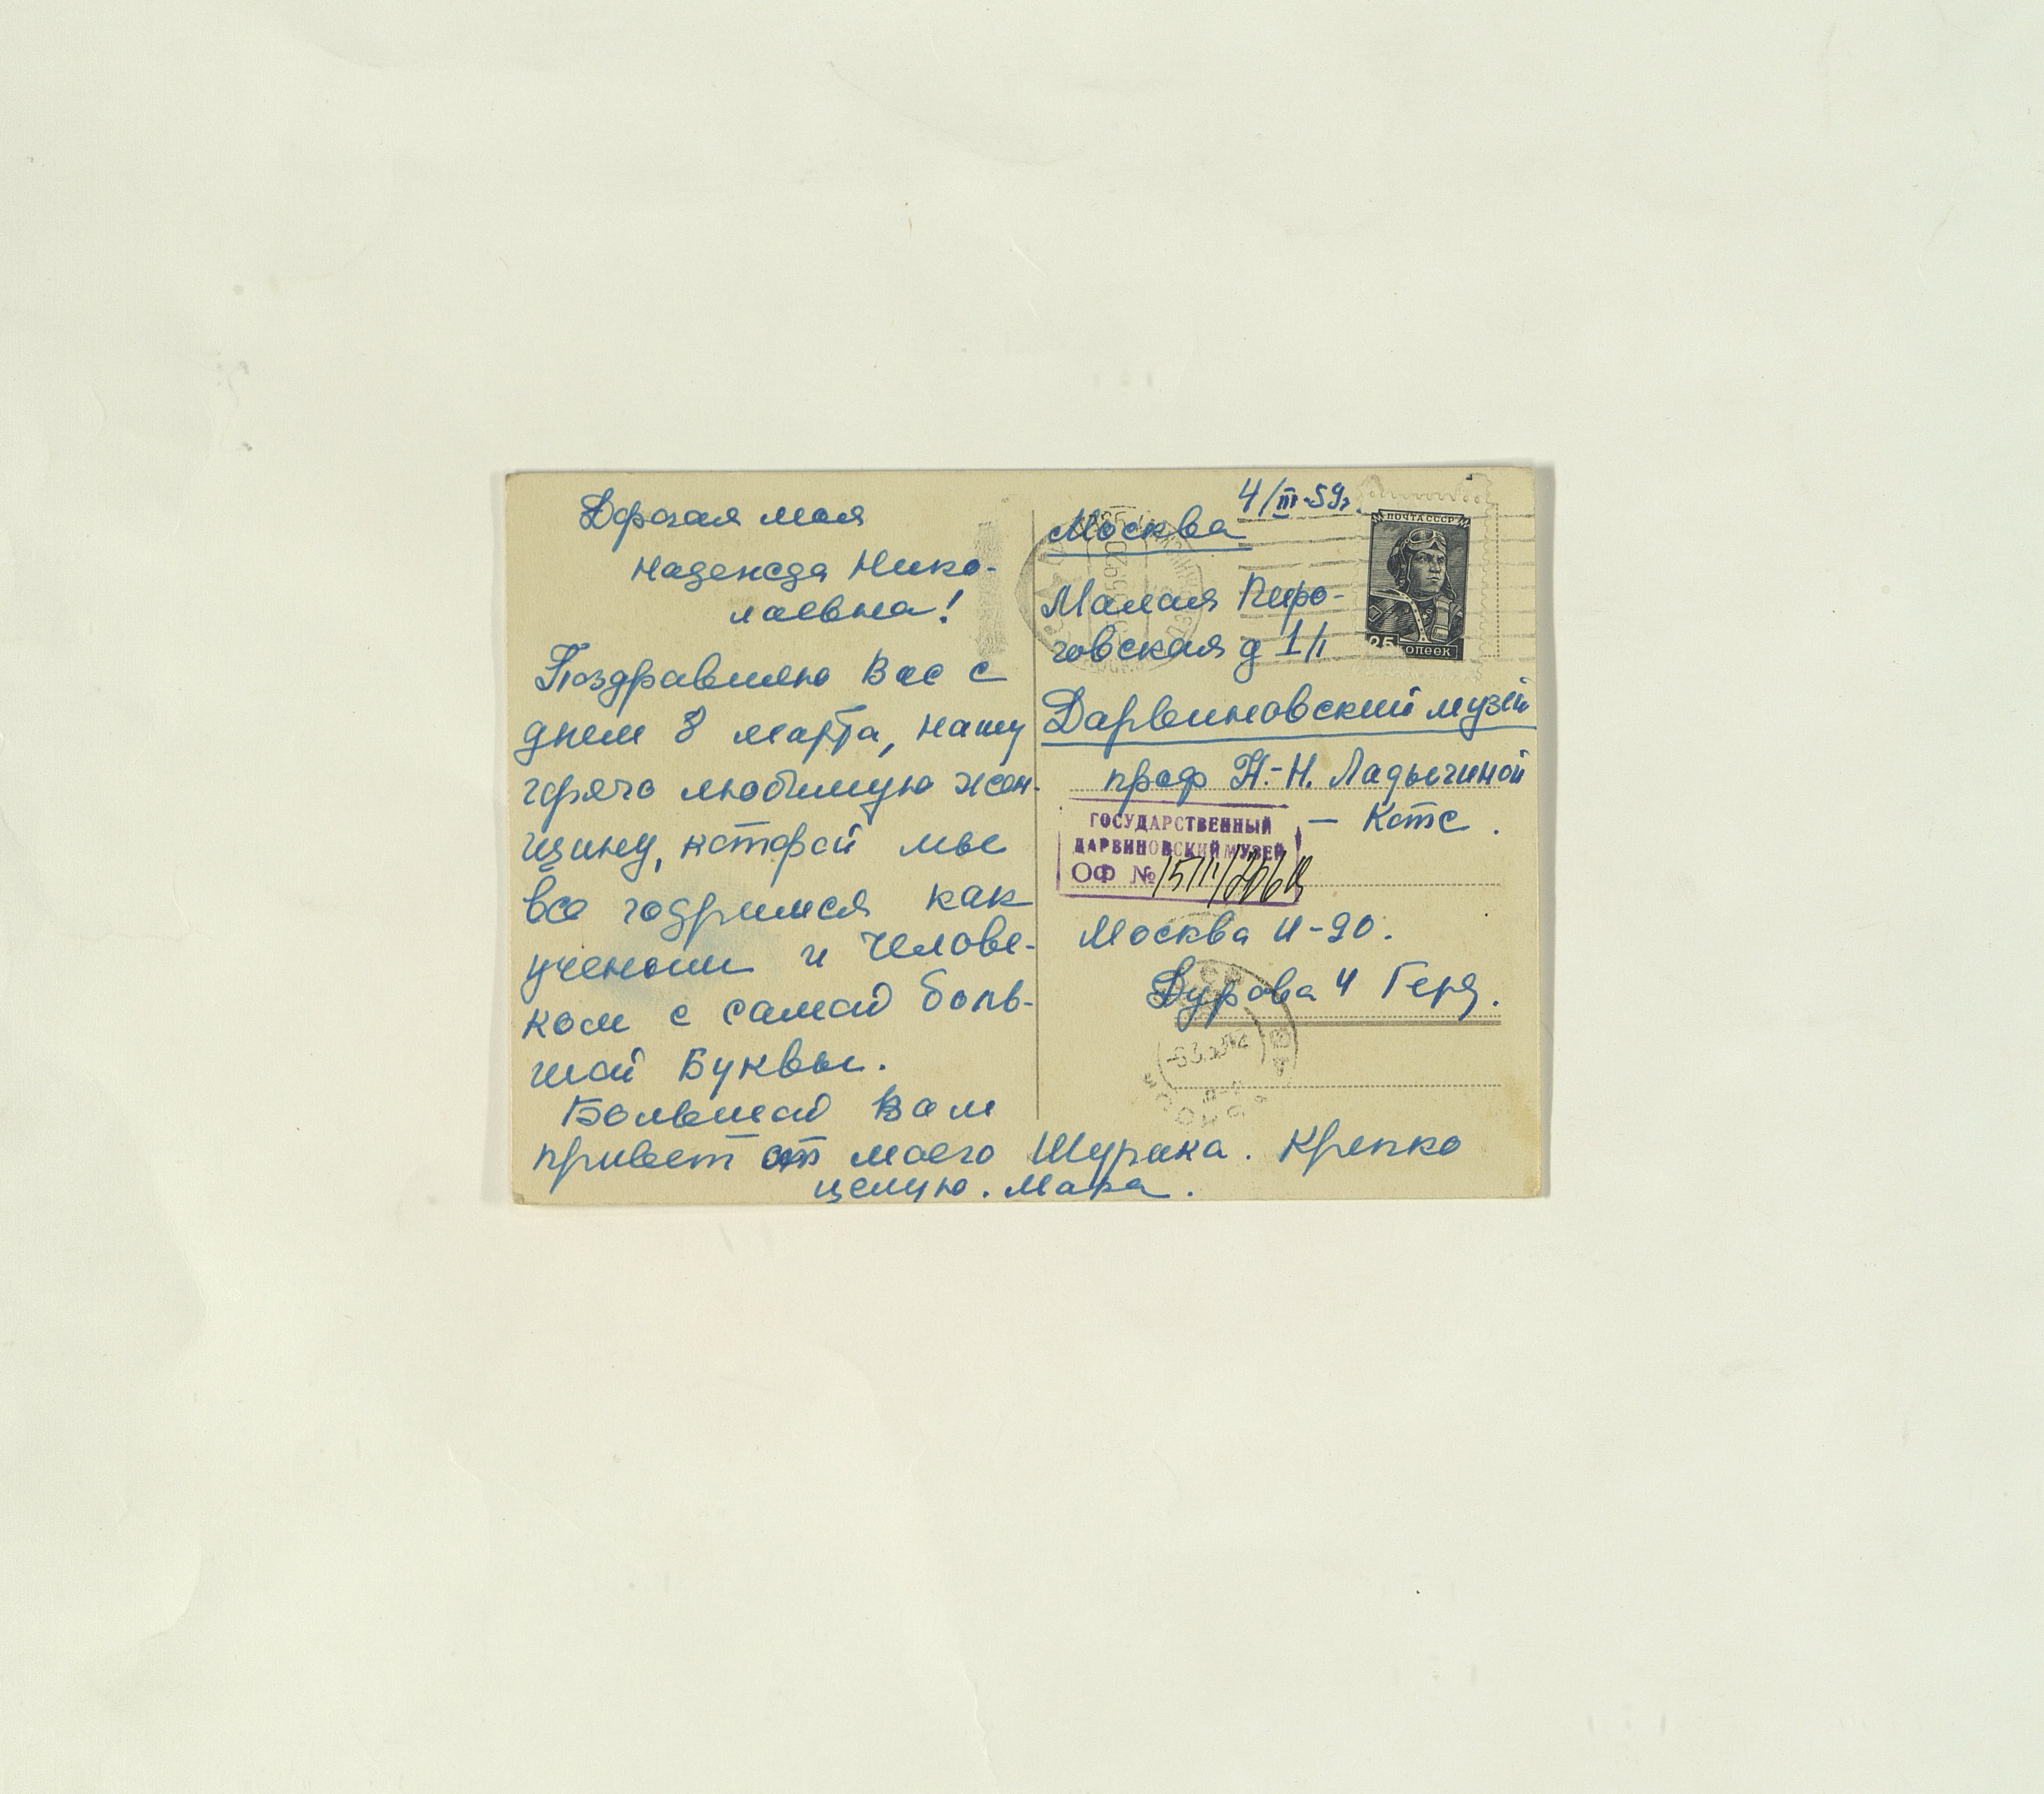 Дорогая моя
Надежда Нико-
лаевна!
Поздравляю Вас с
днем 8 марта, нашу
горячо любимую жен-
щину, которой мы
все гордимся как
ученым и челове-
ком с самой боль-
шой Буквы.
Большой Вам
привет от моего Шурика. Крепко
целую. Мара.
4/III-59г.
Москва
Малая Пиро-
говская д 1/1
Дарвиновский музей
проф Н.-Н. Ладыгиной
- Котс.
ПОЧТА СССР
25 КОПЕЕК
ГОСУДАРСТВЕННЫЙ
ДАРВИНОВСКИЙ МУЗЕЙ
ОФ №
Москва И-90.
Дурова 4 Герд.